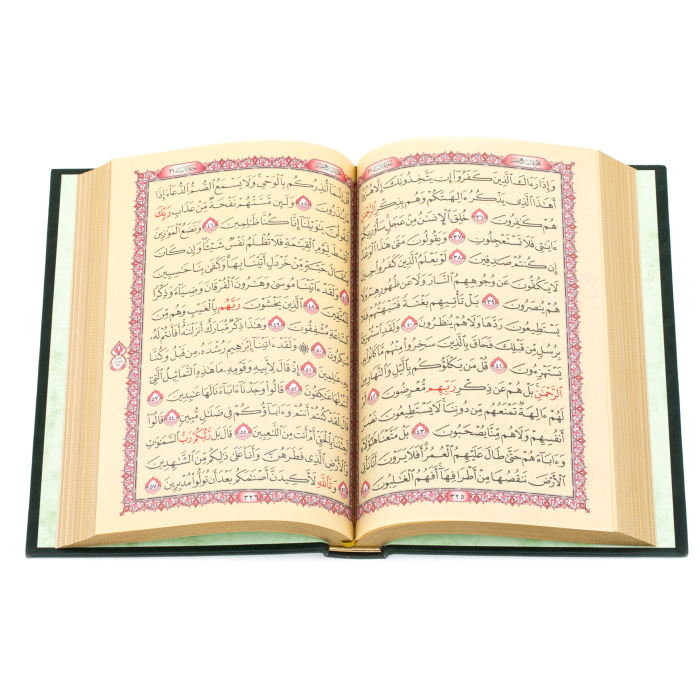 الجزء السابع عشر
سورة الأنبياء ٢١
وَإِذَا رَءَاكَ ٱلَّذِينَ كَفَرُوٓاْ إِن يَتَّخِذُونَكَ إِلَّا هُزُوًا
أَهَٰذَا ٱلَّذِي يَذْكُرُ ءَالِهَتَكُمْ وَهُم بِذِكْرِ ٱلرَّحْمَٰنِ
هُمْ كَٰفِرُونَ ٣٦ خُلِقَ ٱلْإِنسَٰنُ مِنْ عَجَلٍ سَأُوْرِيكُمْ
ءَايَٰتِي فَلَا تَسْتَعْجِلُونِ ٣٧ وَيَقُولُونَ مَتَىٰ هَٰذَا ٱلْوَعْدُ
إِن كُنتُمْ صَٰدِقِينَ ٣٨ لَوْ يَعْلَمُ ٱلَّذِينَ كَفَرُواْ حِينَ
لَا يَكُفُّونَ عَن وُجُوهِهِمُ ٱلنَّارَ وَلَا عَن ظُهُورِهِمْ وَلَا
هُمْ يُنصَرُونَ ٣٩ بَلْ تَأْتِيهِم بَغْتَةً فَتَبْهَتُهُمْ فَلَا
يَسْتَطِيعُونَ رَدَّهَا وَلَا هُمْ يُنظَرُونَ ٤٠ وَلَقَدِ ٱسْتُهْزِئَ
بِرُسُلٍ مِّن قَبْلِكَ فَحَاقَ بِٱلَّذِينَ سَخِرُواْ مِنْهُم مَّا كَانُواْ بِهِۦ
يَسْتَهْزِءُونَ ٤١ قُلْ مَن يَكْلَؤُكُم بِٱلَّيْلِ وَٱلنَّهَارِ مِنَ
ٱلرَّحْمَٰنِ بَلْ هُمْ عَن ذِكْرِ رَبِّهِم مُّعْرِضُونَ ٤٢ أَمْ
لَهُمْ ءَالِهَةٌ تَمْنَعُهُم مِّن دُونِنَا لَا يَسْتَطِيعُونَ نَصْرَ
أَنفُسِهِمْ وَلَا هُم مِّنَّا يُصْحَبُونَ ٤٣ بَلْ مَتَّعْنَا هَٰٓؤُلَآءِ
وَءَابَآءَهُمْ حَتَّىٰ طَالَ عَلَيْهِمُ ٱلْعُمُرُ أَفَلَا يَرَوْنَ أَنَّا نَأْتِي
ٱلْأَرْضَ نَنقُصُهَا مِنْ أَطْرَافِهَآ أَفَهُمُ ٱلْغَٰلِبُونَ ٤٤
٣٢٥
سورة الأنبياء ٢١
قُلْ إِنَّمَآ أُنذِرُكُم بِٱلْوَحْيِ وَلَا يَسْمَعُ ٱلصُّمُّ ٱلدُّعَآءَ إِذَا
مَا يُنذَرُونَ ٤٥ وَلَئِن مَّسَّتْهُمْ نَفْحَةٌ مِّنْ عَذَابِ رَبِّكَ
لَيَقُولُنَّ يَٰوَيْلَنَآ إِنَّا كُنَّا ظَٰلِمِينَ ٤٦ وَنَضَعُ ٱلْمَوَٰزِينَ
ٱلْقِسْطَ لِيَوْمِ ٱلْقِيَٰمَةِ فَلَا تُظْلَمُ نَفْسٌ شَيْـًٔا وَإِن كَانَ
مِثْقَالَ حَبَّةٍ مِّنْ خَرْدَلٍ أَتَيْنَا بِهَا وَكَفَىٰ بِنَا حَٰسِبِينَ
٤٧ وَلَقَدْ ءَاتَيْنَا مُوسَىٰ وَهَٰرُونَ ٱلْفُرْقَانَ وَضِيَآءً وَذِكْرًا
لِّلْمُتَّقِينَ ٤٨ ٱلَّذِينَ يَخْشَوْنَ رَبَّهُم بِٱلْغَيْبِ وَهُم مِّنَ
ٱلسَّاعَةِ مُشْفِقُونَ ٤٩ وَهَٰذَا ذِكْرٌ مُّبَارَكٌ أَنزَلْنَٰهُ أَفَأَنتُمْ لَهُۥ
مُنكِرُونَ ٥٠ ۞ وَلَقَدْ ءَاتَيْنَآ إِبْرَٰهِيمَ رُشْدَهُۥ مِن قَبْلُ وَكُنَّا
بِهِۦ عَٰلِمِينَ ٥١ إِذْ قَالَ لِأَبِيهِ وَقَوْمِهِۦ مَا هَٰذِهِ ٱلتَّمَاثِيلُ ٱلَّتِيٓ
أَنتُمْ لَهَا عَٰكِفُونَ ٥٢ قَالُواْ وَجَدْنَآ ءَابَآءَنَا لَهَا عَٰبِدِينَ ٥٣
قَالَ لَقَدْ كُنتُمْ أَنتُمْ وَءَابَآؤُكُمْ فِي ضَلَٰلٍ مُّبِينٍ ٥٤ قَالُوٓاْ
أَجِئْتَنَا بِٱلْحَقِّ أَمْ أَنتَ مِنَ ٱللَّٰعِبِينَ ٥٥ قَالَ بَل رَّبُّكُمْ رَبُّ ٱلسَّمَٰوَٰتِ
وَٱلْأَرْضِ ٱلَّذِي فَطَرَهُنَّ وَأَنَا۠ عَلَىٰ ذَٰلِكُم مِّنَ ٱلشَّٰهِدِينَ
٥٦ وَتَٱللَّهِ لَأَكِيدَنَّ أَصْنَٰمَكُم بَعْدَ أَن تُوَلُّواْ مُدْبِرِينَ ٥٧
٣٢٦